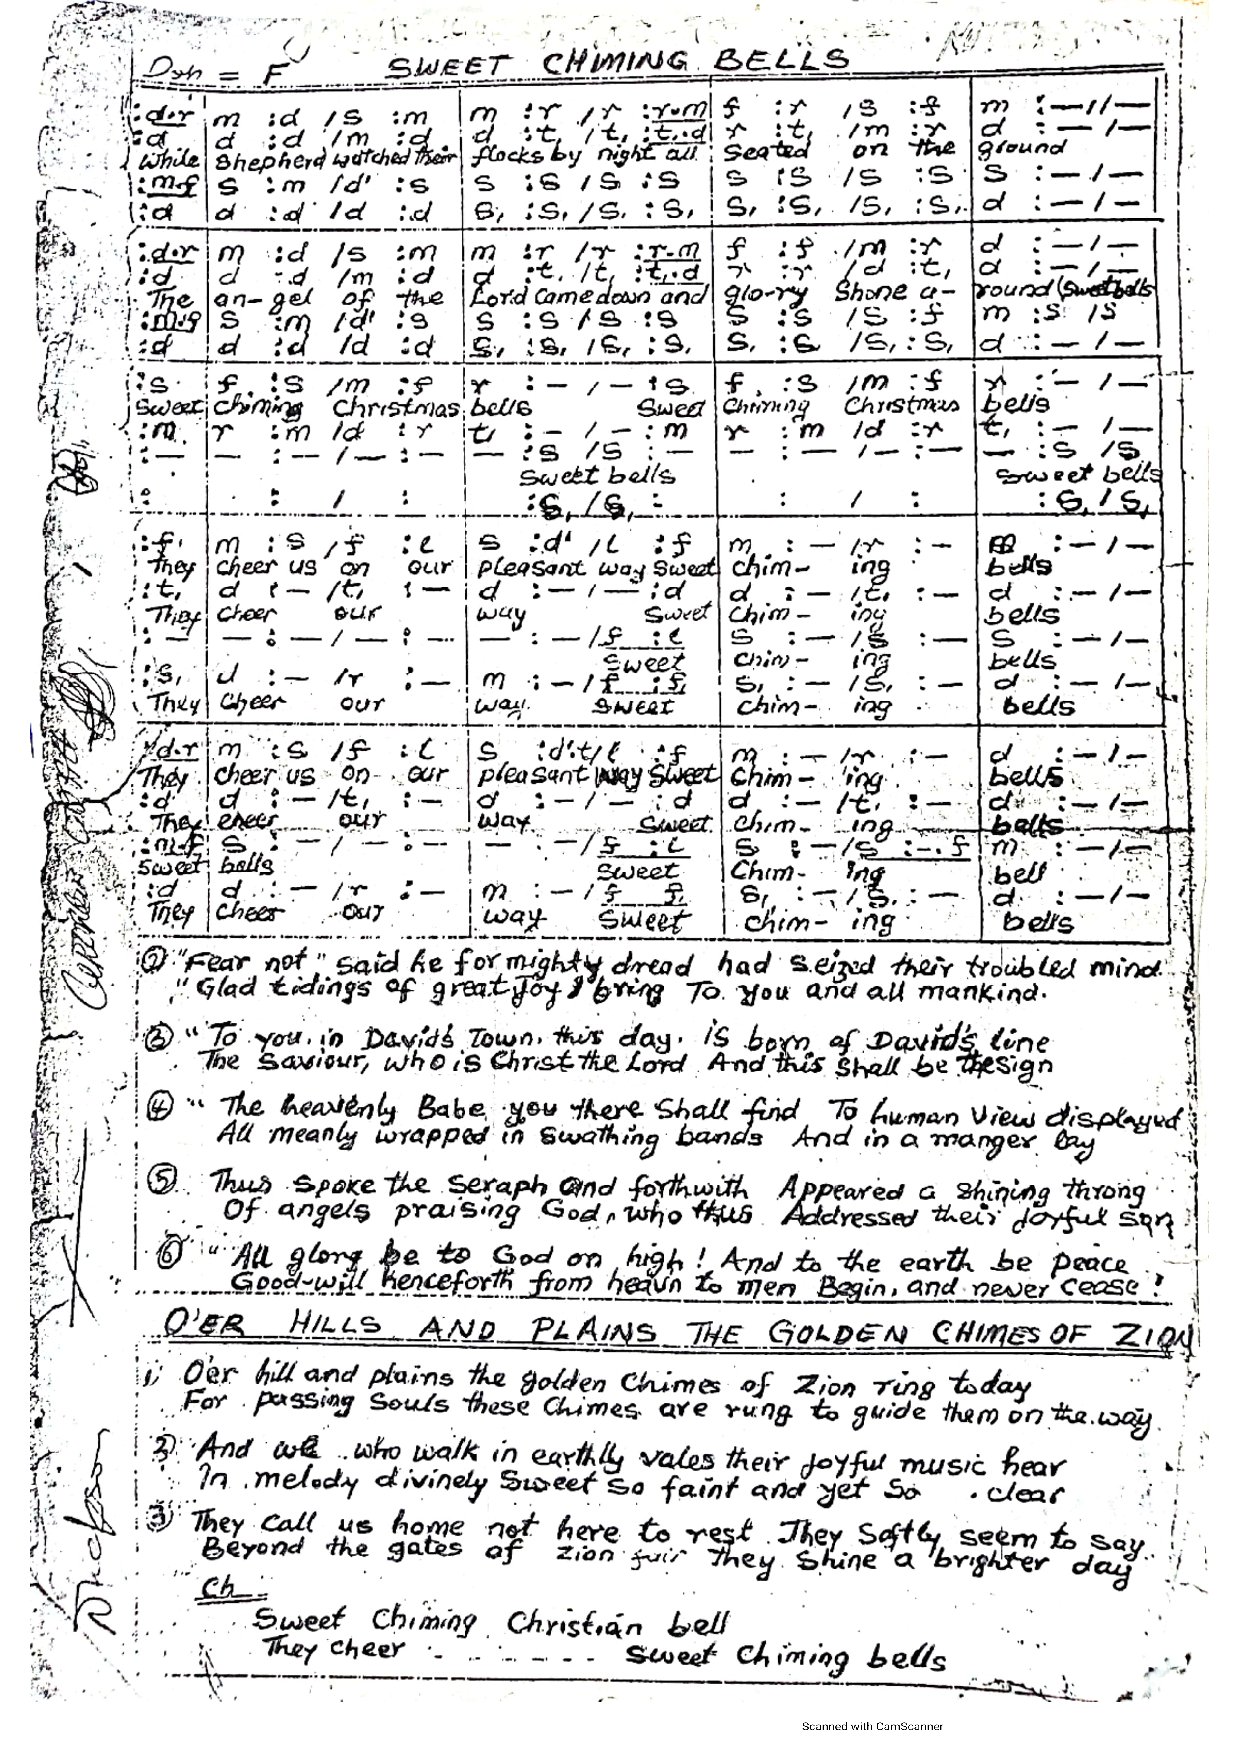 Doh = F SWEET CHIMING BELLS
:d.r m :d /s :m m :r /r :r.m f :r /s :f m :—//—
:d d :d /m :d d :t, /t, :t,.d r :t, /m :r d :—/—
While Shepherd watched their flocks by night all seated on the ground
:m.f s :m /d' :s s :s /s :s s :s /s :s s :—/—
:d d :d /d :d s, :s, /s, :s, s, :s, /s, :s, d :—/—
:d.r m :d /s :m m :r /r :r.m f :f /m :r d :—/—
:d d :d /m :d d :t, /t, :t,.d r :r /d :t, d :—/—
The an-gel of the Lord came down and glo-ry Shone a-round (Sweet bells
s :m /d' :s s :s /s :s s :s /s :f m :s /s
:d d :d /d :d s, :s, /s, :s, s, :s, /s, :s, d :—/—
:s f :s /m :f r :—/—:s f :s /m :f r :—/—
Sweet chiming Christmas bells Sweet Chiming Christmas bells
:m r :m /d :r t, :—/—:m r :m /d :r t, :—/—
:— — :—/—:— — :s /s :— — :—/—:— — :s /s
Sweet bells Sweet bells
: : / : :s, /s, :- : / : :s, /s,
:f m :s /f :l s :d' /l :f m :—/r :— m :—/—
They cheer us on our pleasant way Sweet chim- ing bells
:t, d :—/t, :— d :—/—:d d :—/t, :— d :—/—
They cheer our way Sweet Chim- ing bells
:— — :—/—:— — :—/f :l s :—/s :— s :—/—
Sweet chim- ing bells
:s, d :—/r :— m :—/f :f, s, :—/s, :— d :—/—
They cheer our way Sweet chim- ing bells
:d.r m :s /f :l s :d'.t/l :f m :—/r :— d :—/—
They cheer us on our pleasant way Sweet Chim- ing bells
:d d :—/t, :— d :—/—:d d :—/t, :— d :—/—
They cheer our way Sweet chim- ing bells
:m.f s :—/—:— — :—/f :l s :—/s :-.f m :—/—
Sweet bells Sweet Chim- ing bell
:d d :—/r :— m :—/f f, s, :—/s, :— d :—/—
They cheer our way Sweet chim- ing bells
② "Fear not" said he for mighty dread had seized their troubled mind
"Glad tidings of great Joy I bring To you and all mankind.
③ "To you, in David's Town, this day. is born of David's line
The Saviour, who is Christ the Lord And this shall be the sign
④ " The heavenly Babe you there Shall find To human View displayed
All meanly wrapped in Swathing bands And in a manger lay
⑤ Thus spoke the seraph and forthwith Appeared a shining throng
Of angels praising God, who thus Addressed their joyful son
⑥ " All glory be to God on high! And to the earth be peace
Good-will henceforth from heav'n to men Begin, and never cease!
O'ER HILLS AND PLAINS THE GOLDEN CHIMES OF ZION
1, O'er hill and plains the golden Chimes of Zion ring today
For passing Souls these Chimes are rung to guide them on the way
2, And we who walk in earthly vales their joyful music hear
In melody divinely Sweet so faint and yet so clear
3 They call us home not here to rest They Softly seem to say
Beyond the gates of Zion fair They Shine a brighter day
Ch
Sweet Chiming Christian bell
They cheer ........ Sweet Chiming bells
Scanned with CamScanner